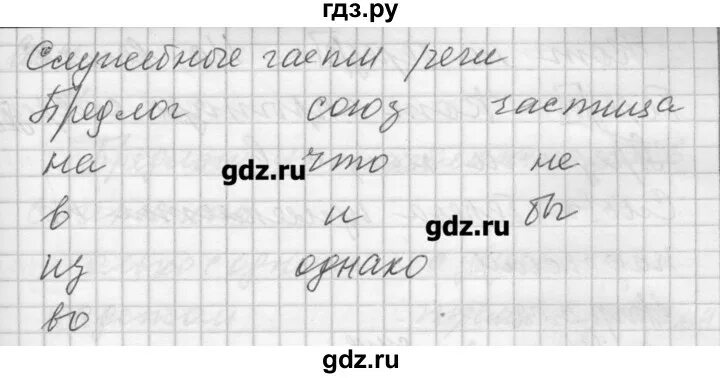 гдз.ру
Служебные части речи
Предлог союз частица
на что не
gdz.ru
в и бы
gdz.ru
из однако
во
gdz.ru